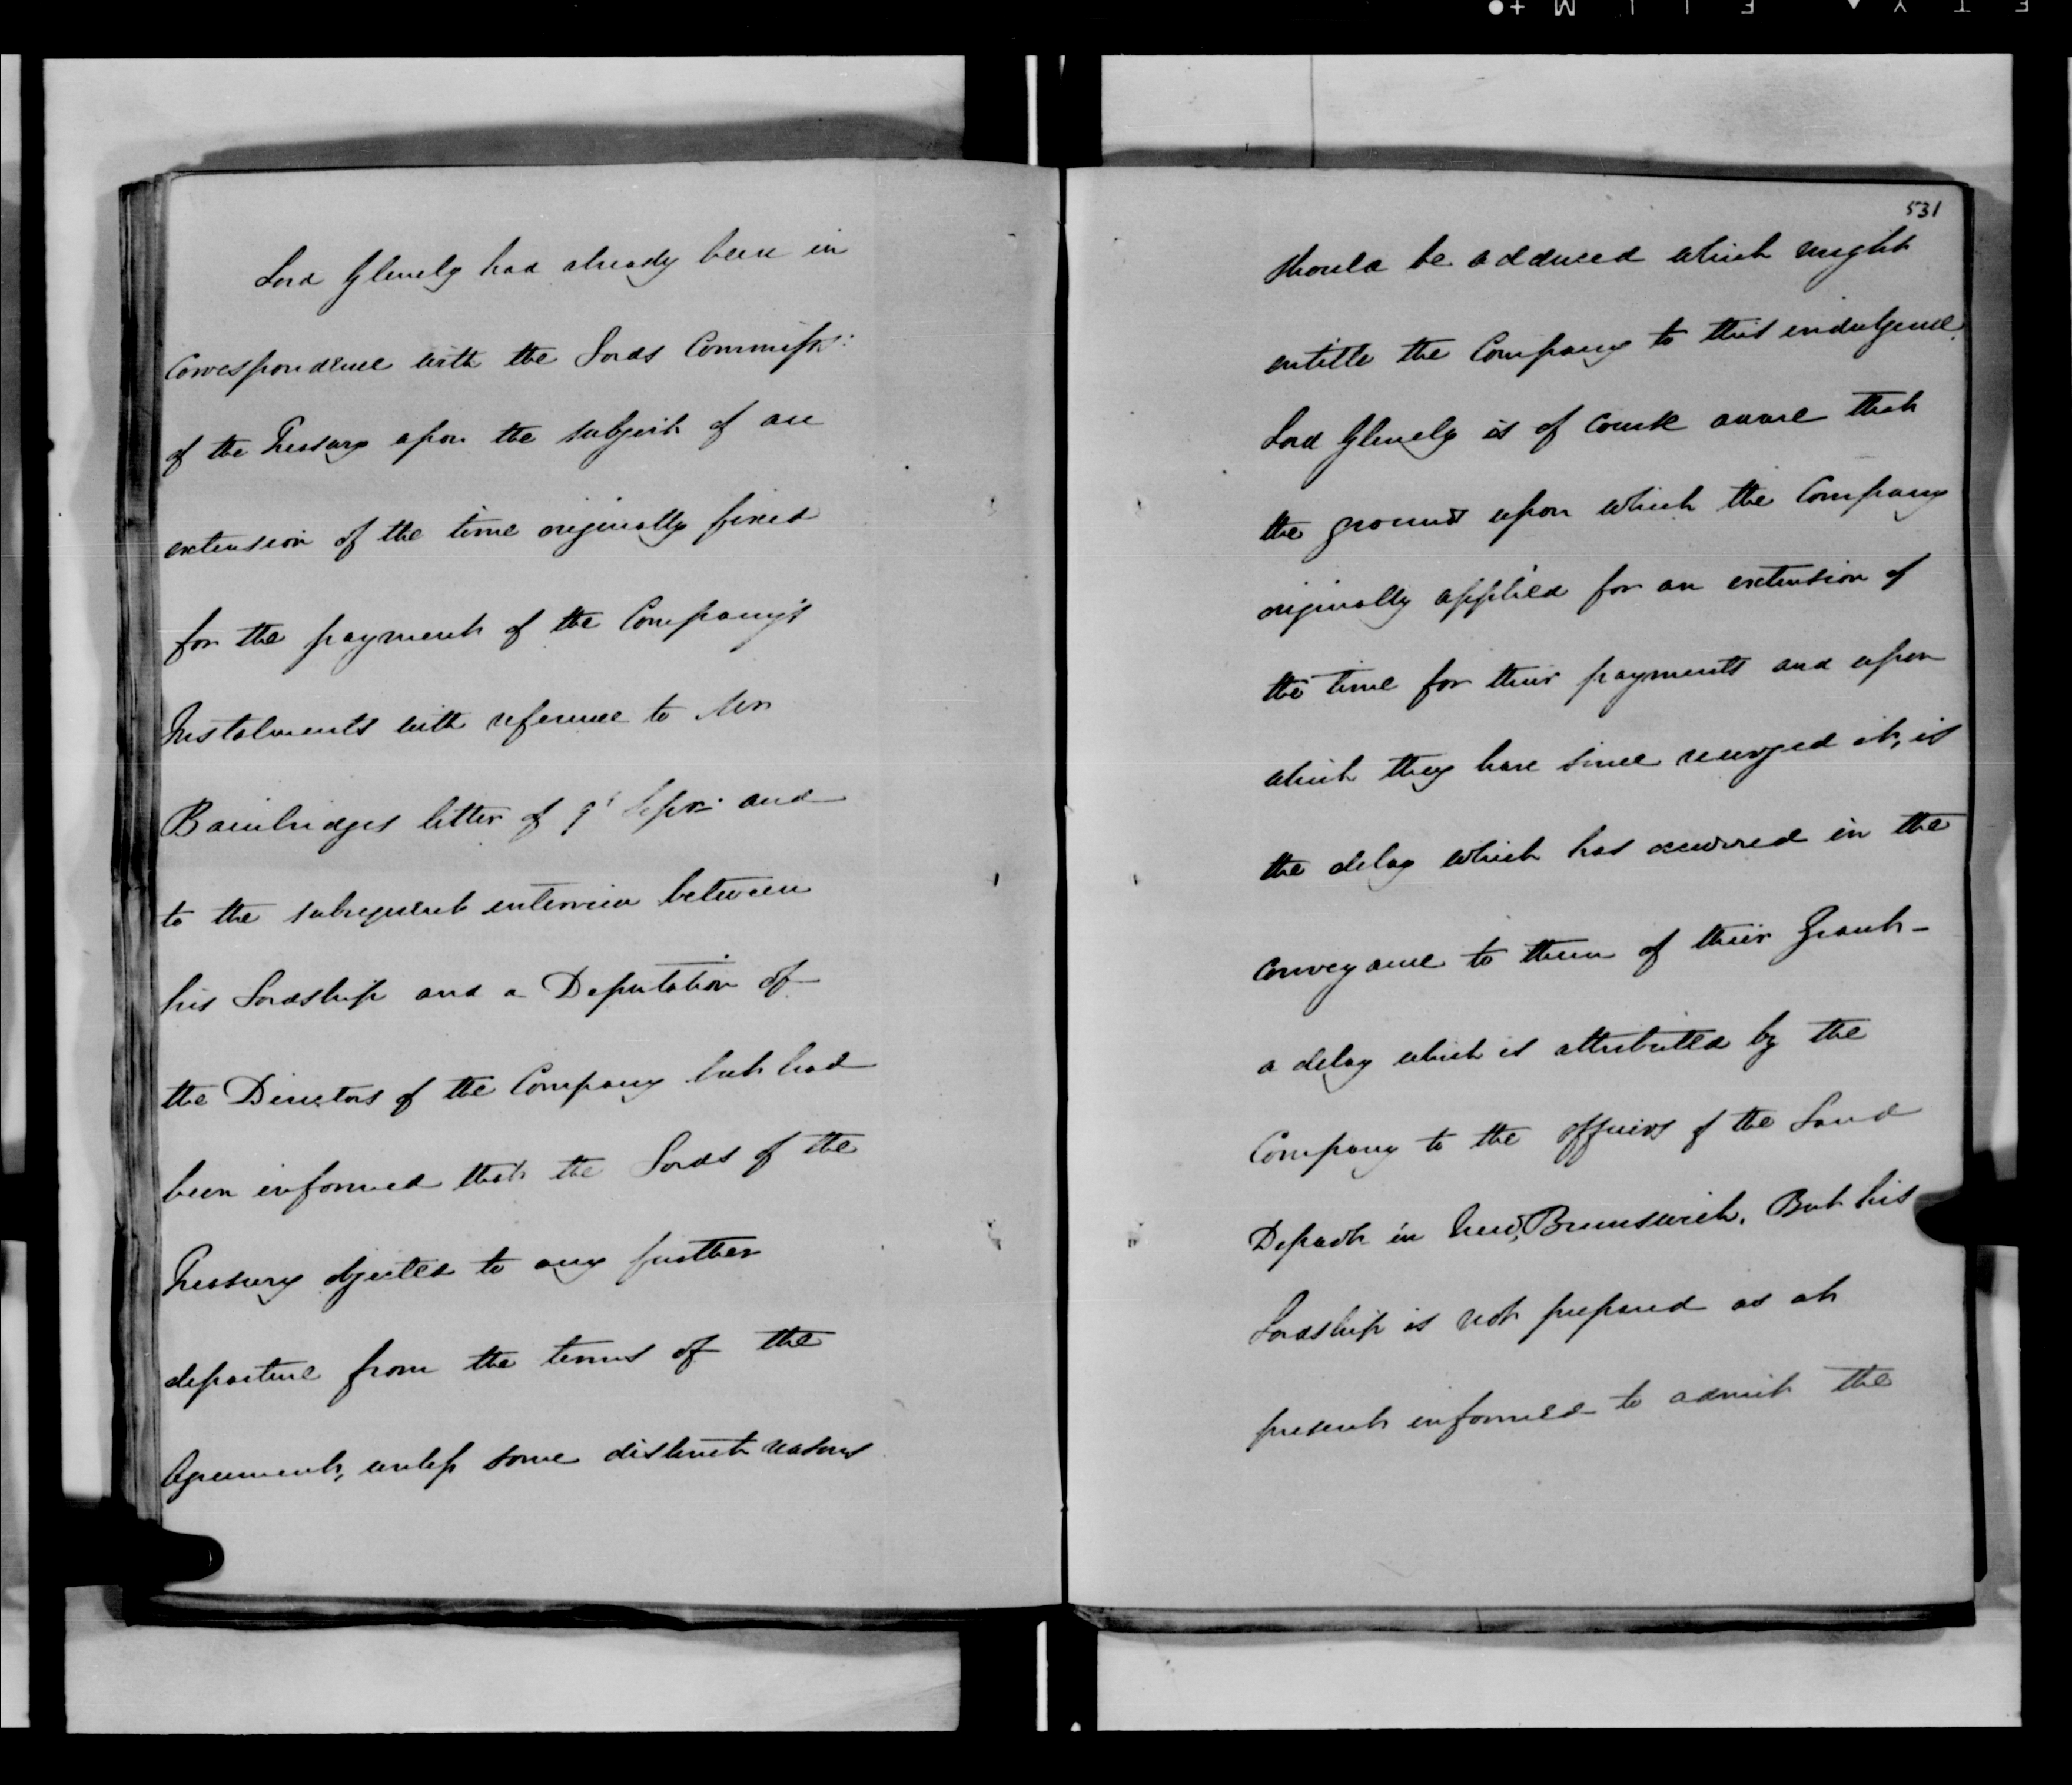 Lord Glenelg had already been in
correspondence with the Lords Commissrs:
of the Treasury upon the subject of an
extension of the time originally fixed
for the payment of the Company's
Instalments with reference to Mr
Bainbridges letter of 9th Septr. and
to the subsequent interview between
his Lordship and a Deputation of
the Directors of the Company but had
been informed that the Lords of the
Treasury objected to any further
departure from the terms of the
Agreement, unless some distinct reasons
531
should be adduced which might
entitle the Company to this indulgence.
Lord Glenelg is of course aware that
the ground upon which the Company
originally applied for an extension of
the time for their payments and upon
which they have since reurged it, is
the delay which has occurred in the
conveyance to them of their Grant -
a delay which is attributed by the
Company to the officers of the Land
Departt in New Brunswick. But his
Lordship is not prepared as at
present informed to admit the